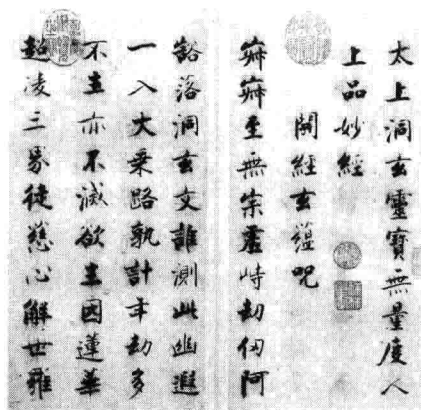 太上洞玄靈寶無量度人
上品妙經
開經玄蘊呪
寂寂至無宗虛峙劫仞阿
豁落洞玄文誰測此幽遐
一入大乗路孰計年劫多
不生亦不滅欲生因蓮華
超凌三界徒慈心解世羅